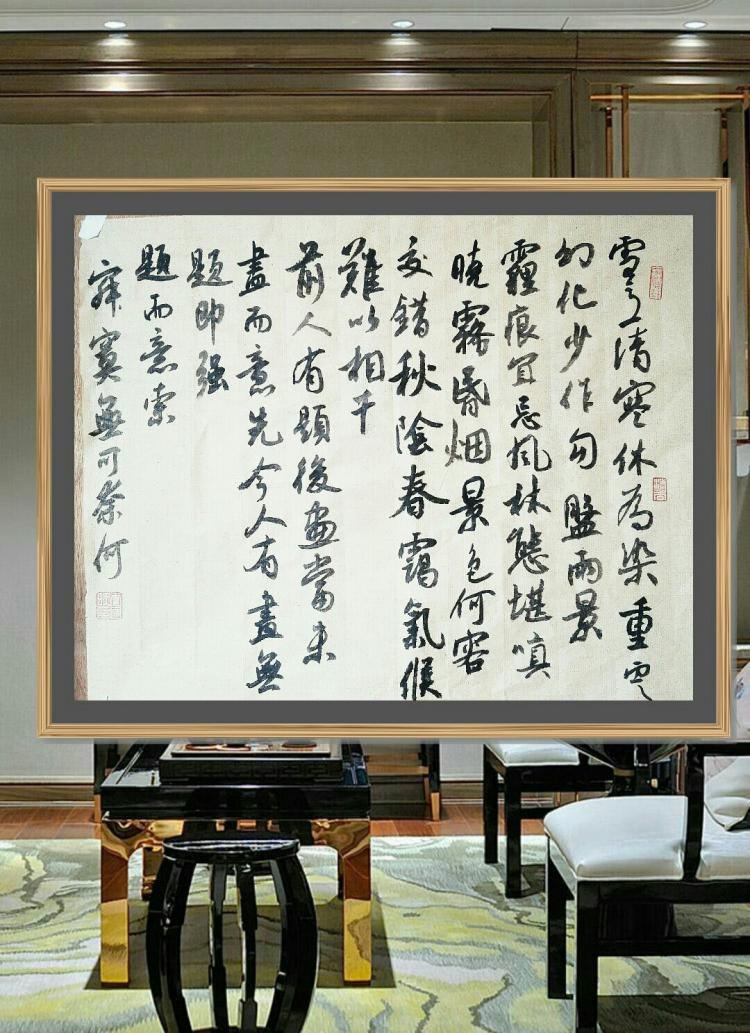 雪意清寒休為染重雲
幻化少作勾盤雨景
霾痕宜忌風林態堪嗔
曉霧昏烟景色何容
交錯秋陰春靄氣候
難以相干
前人有題後畫當未
畫而意先今人有畫無
題即强
題而意索
寂寞無可奈何